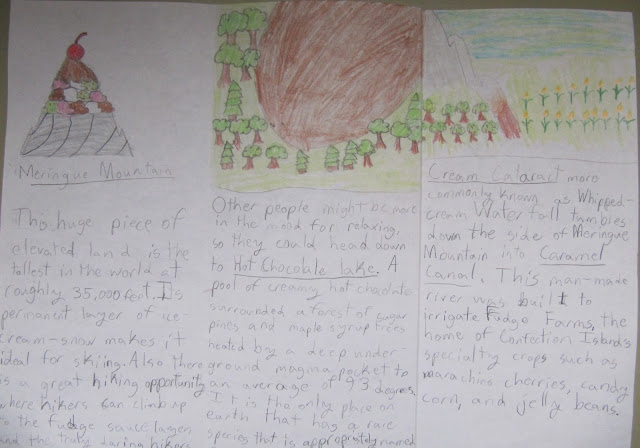 Meringue Mountain
This huge piece of
elevated land is the
tallest in the world at
roughly 35,000 feet. Its
permanent layer of ice-
cream-snow makes it
ideal for skiing. Also there
is a great hiking opportunity
where hikers can climb up
to the fudge sauce layer
and the truly daring hikers
Other people might be more
in the mood for relaxing,
so they could head down
to Hot Chocolate Lake. A
pool of creamy hot chocolate
surrounded a forest of sugar
pines and maple syrup trees
heated by a deep under-
ground magma pocket to
an average of 93 degrees.
It is the only place on
earth that has a rare
species that is appropriately named
Cream Cataract more
commonly known as Whipped-
cream Waterfall tumbles
down the side of Meringue
Mountain into Caramel
Canal. This man-made
river was built to
irrigate Fudge Farms, the
home of Confection Island's
specialty crops such as
marachino cherries, candy
corn, and jelly beans.